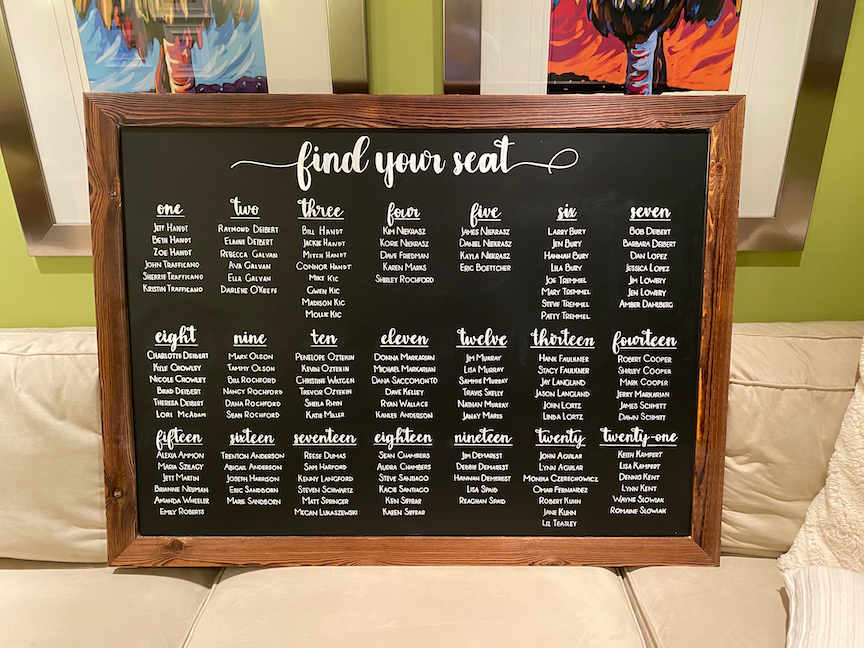 find your seat
one
Jeff Handt
Beth Handt
Zoe Handt
John Trafficano
Sherrie Trafficano
Kristin Trafficano
two
Raymond Deibert
Elaine Deibert
Rebecca Galvan
Ava Galvan
Ella Galvan
Darlene O'Keefe
three
Bill Handt
Jackie Handt
Mitch Handt
Connor Handt
Mike Kic
Gwen Kic
Madison Kic
Mollie Kic
four
Kim Niekrasz
Korie Niekrasz
Dave Friedman
Karen Marks
Shirley Rochford
five
James Niekrasz
Daniel Niekrasz
Kayla Niekrasz
Eric Boettcher
six
Larry Bury
Jen Bury
Hannah Bury
Lila Bury
Joe Tremmel
Mary Tremmel
Steve Tremmel
Patty Tremmel
seven
Bob Deibert
Barbara Deibert
Dan Lopez
Jessica Lopez
Jim Lowery
Jen Lowery
Amber Dahlberg
eight
Charlotte Deibert
Kyle Crowley
Nicole Crowley
Brad Deibert
Theresa Deibert
Lori McAdam
nine
Mark Olson
Tammy Olson
Bill Rochford
Nancy Rochford
Dana Rochford
Sean Rochford
ten
Penelope Oztekin
Kevin Oztekin
Christine Wiltgen
Trevor Oztekin
Sheila Rhyn
Kathi Miller
eleven
Donna Markarian
Michael Markarian
Dana Saccomonto
Dave Kelley
Ryan Wallace
Kahlee Anderson
twelve
Jim Murray
Lisa Murray
Sammie Murray
Travis Skelly
Nathan Murray
Janay Mares
thirteen
Hank Faulkner
Stacy Faulkner
Jay Langland
Jason Langland
John Lortz
Linda Lortz
fourteen
Robert Cooper
Shirley Cooper
Mark Cooper
Jerry Markarian
James Schmitt
Dawn Schmitt
fifteen
Alexia Ammon
Maria Szilagy
Jett Martin
Brianne Neuman
Amanda Wheeler
Emily Roberts
sixteen
Trenton Anderson
Abigail Anderson
Joseph Harrison
Eric Sandborn
Marie Sandborn
seventeen
Reese Dumas
Sam Harford
Kenny Langford
Steven Schwartz
Matt Springer
Megan Lukaszewski
eighteen
Sean Chambers
Audra Chambers
Steve Santiago
Kacie Santiago
Ken Siffrar
Karen Siffrar
nineteen
Jim Demarest
Debbie Demarest
Hannah Demarest
Lisa Spaid
Reaghan Spaid
twenty
John Aguilar
Lynn Aguilar
Monika Czerechowicz
Omar Fernandez
Robert Kuhn
Jane Kuhn
Liz Teasley
twenty-one
Keith Kampert
Lisa Kampert
Dennis Kent
Lynn Kent
Wayne Slowiak
Romaine Slowiak